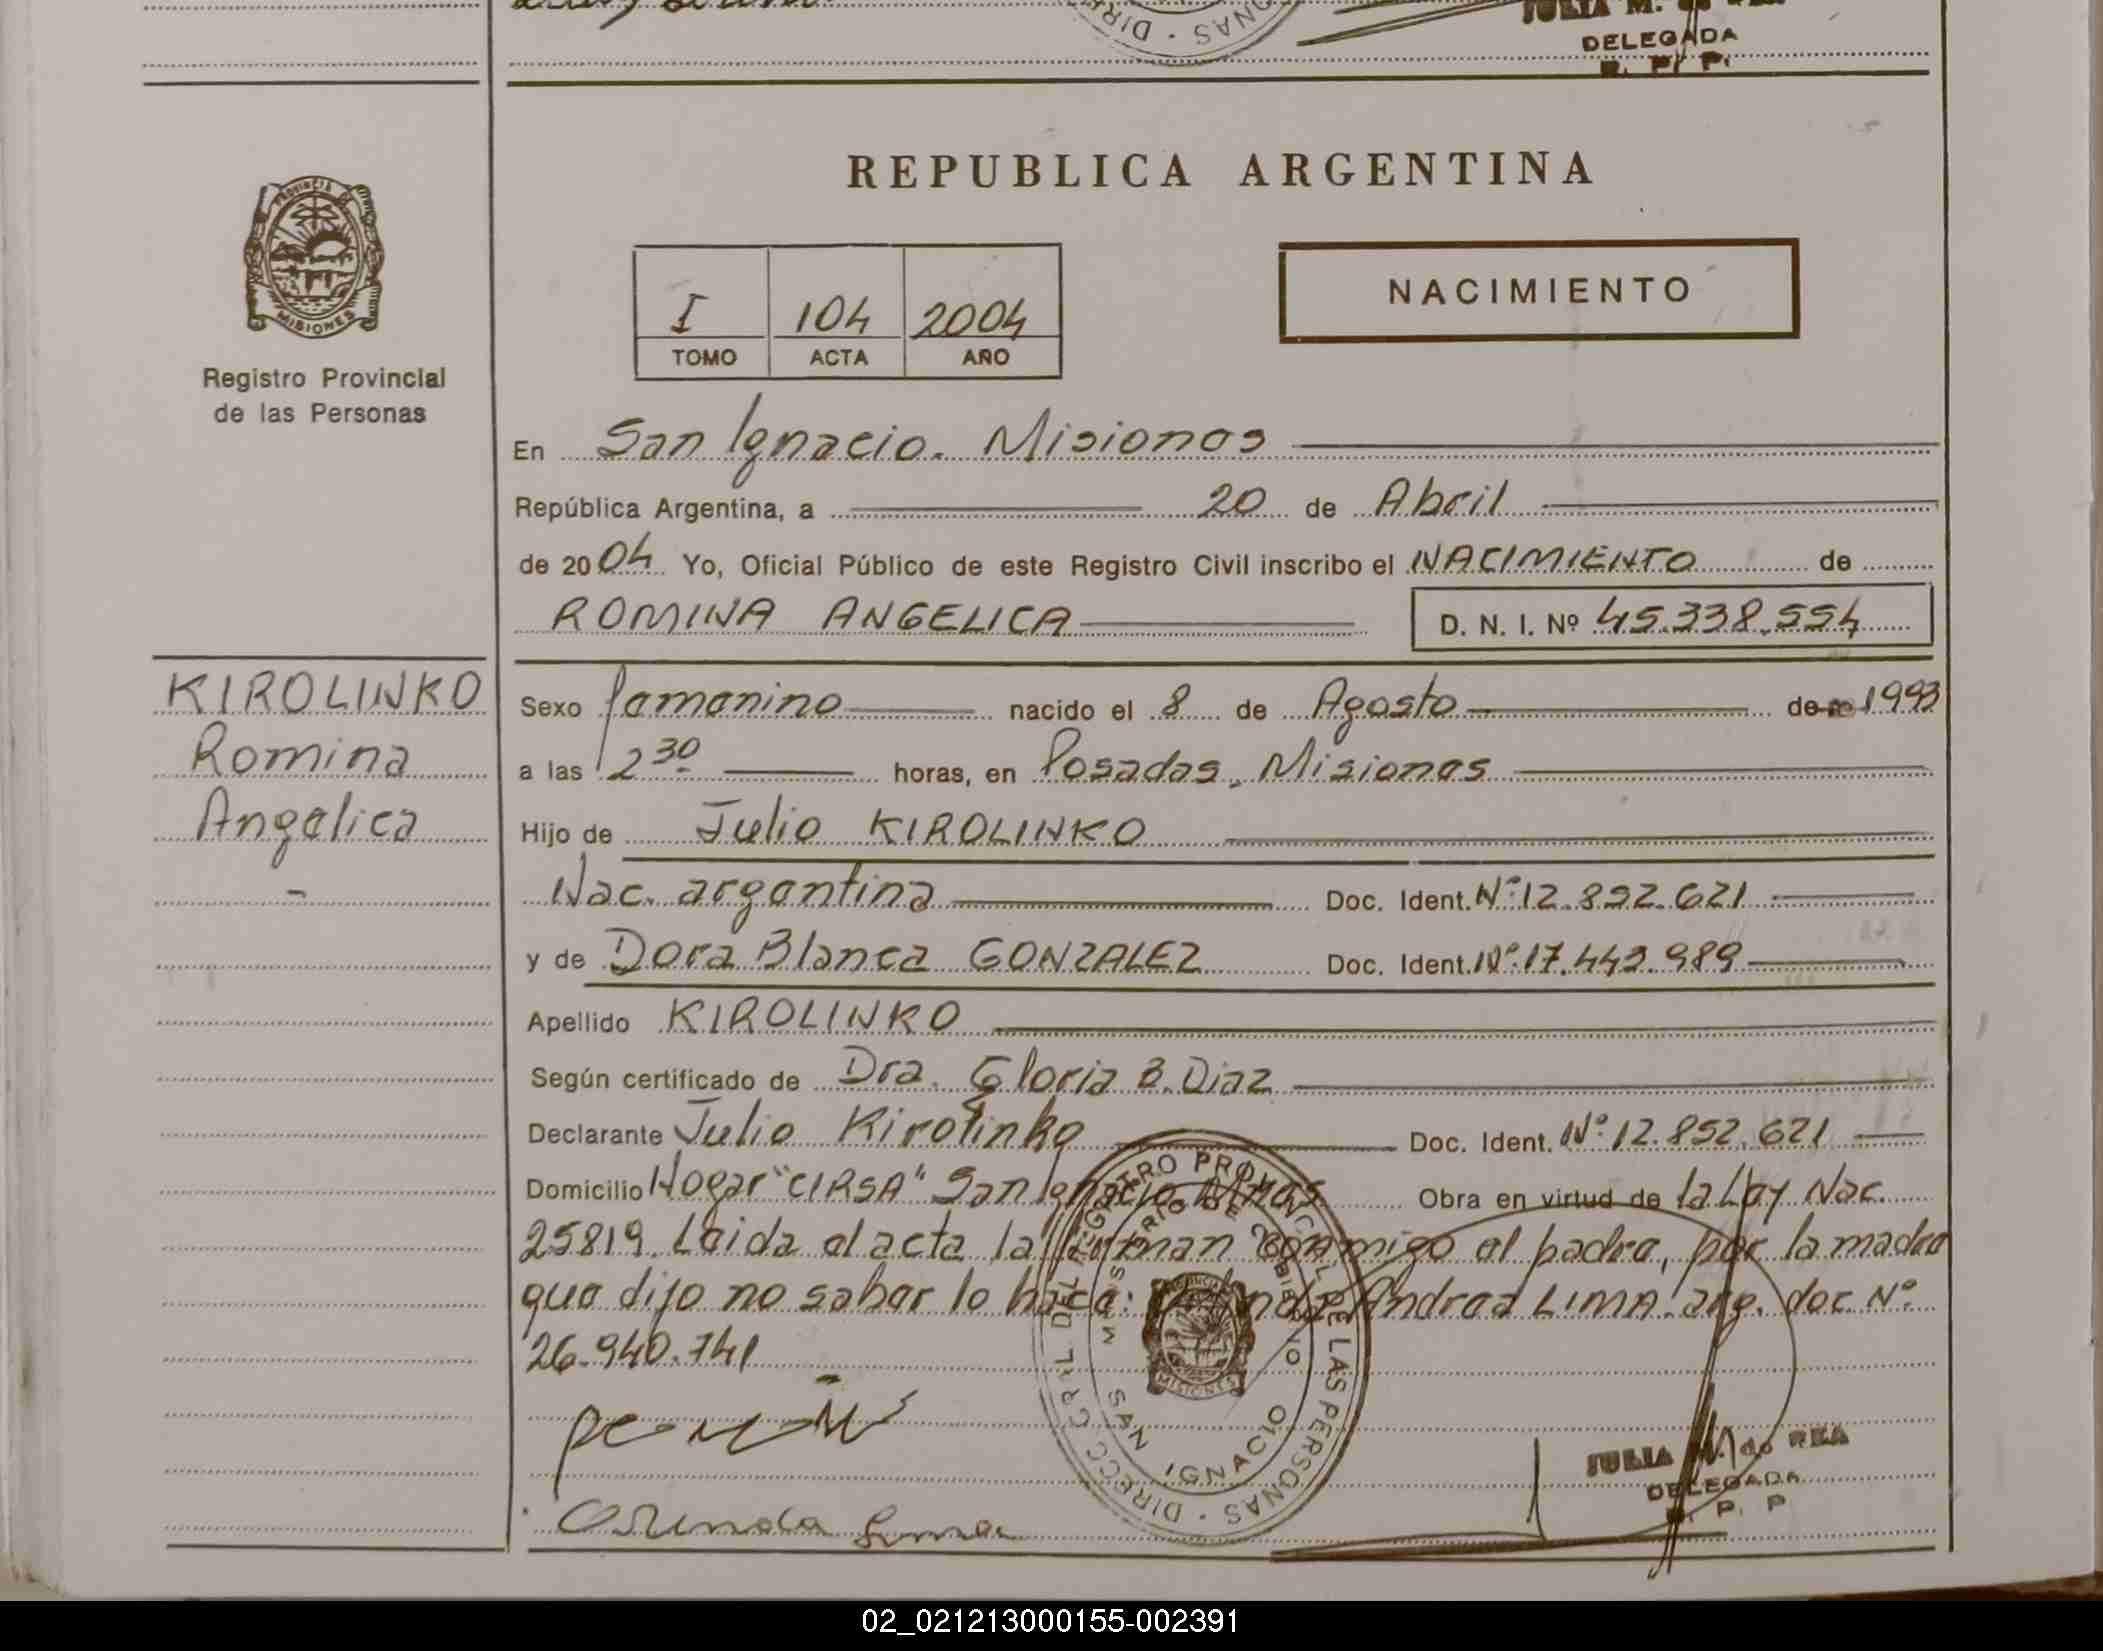 DELEGADA
R. P. P.
REPUBLICA ARGENTINA
PROVINCIA DE
MISIONES
Registro Provincial
de las Personas
NACIMIENTO
I 104 2004
TOMO ACTA AÑO
En San Ignacio. Misiones
República Argentina, a 20 de Abril
de 2004 Yo, Oficial Público de este Registro Civil inscribo el NACIMIENTO de
ROMINA ANGELICA D. N. I. Nº 45.338.554
KIROLINKO
Romina
Angelica
Sexo femenino nacido el 8 de Agosto de 1993
a las 2 30 horas, en Posadas, Misiones
Hijo de Julio KIROLINKO
Nac. argentina Doc. Ident. Nº 12.852.621
y de Dora Blanca GONZALEZ Doc. Ident. Nº 17.443.989
Apellido KIROLINKO
Según certificado de Dra. Gloria B. Diaz
Declarante Julio Kirolinko Doc. Ident. Nº 12.852.621
Domicilio Hogar "CIRSA" San Ignacio Mnes Obra en virtud de la Ley Nac.
25819. Leida el acta la firman conmigo el padre, por la madre
que dijo no saber lo hace: Andrea LIMA. arg. doc. Nº
26.940.741
DIRECC. GRAL. DEL REGISTRO PROVINCIAL DE LAS PERSONAS
MINISTERIO DE GOBIERNO
MISIONES
SAN IGNACIO
JULIA M. de REA
DELEGADA
R. P. P
02_021213000155-002391